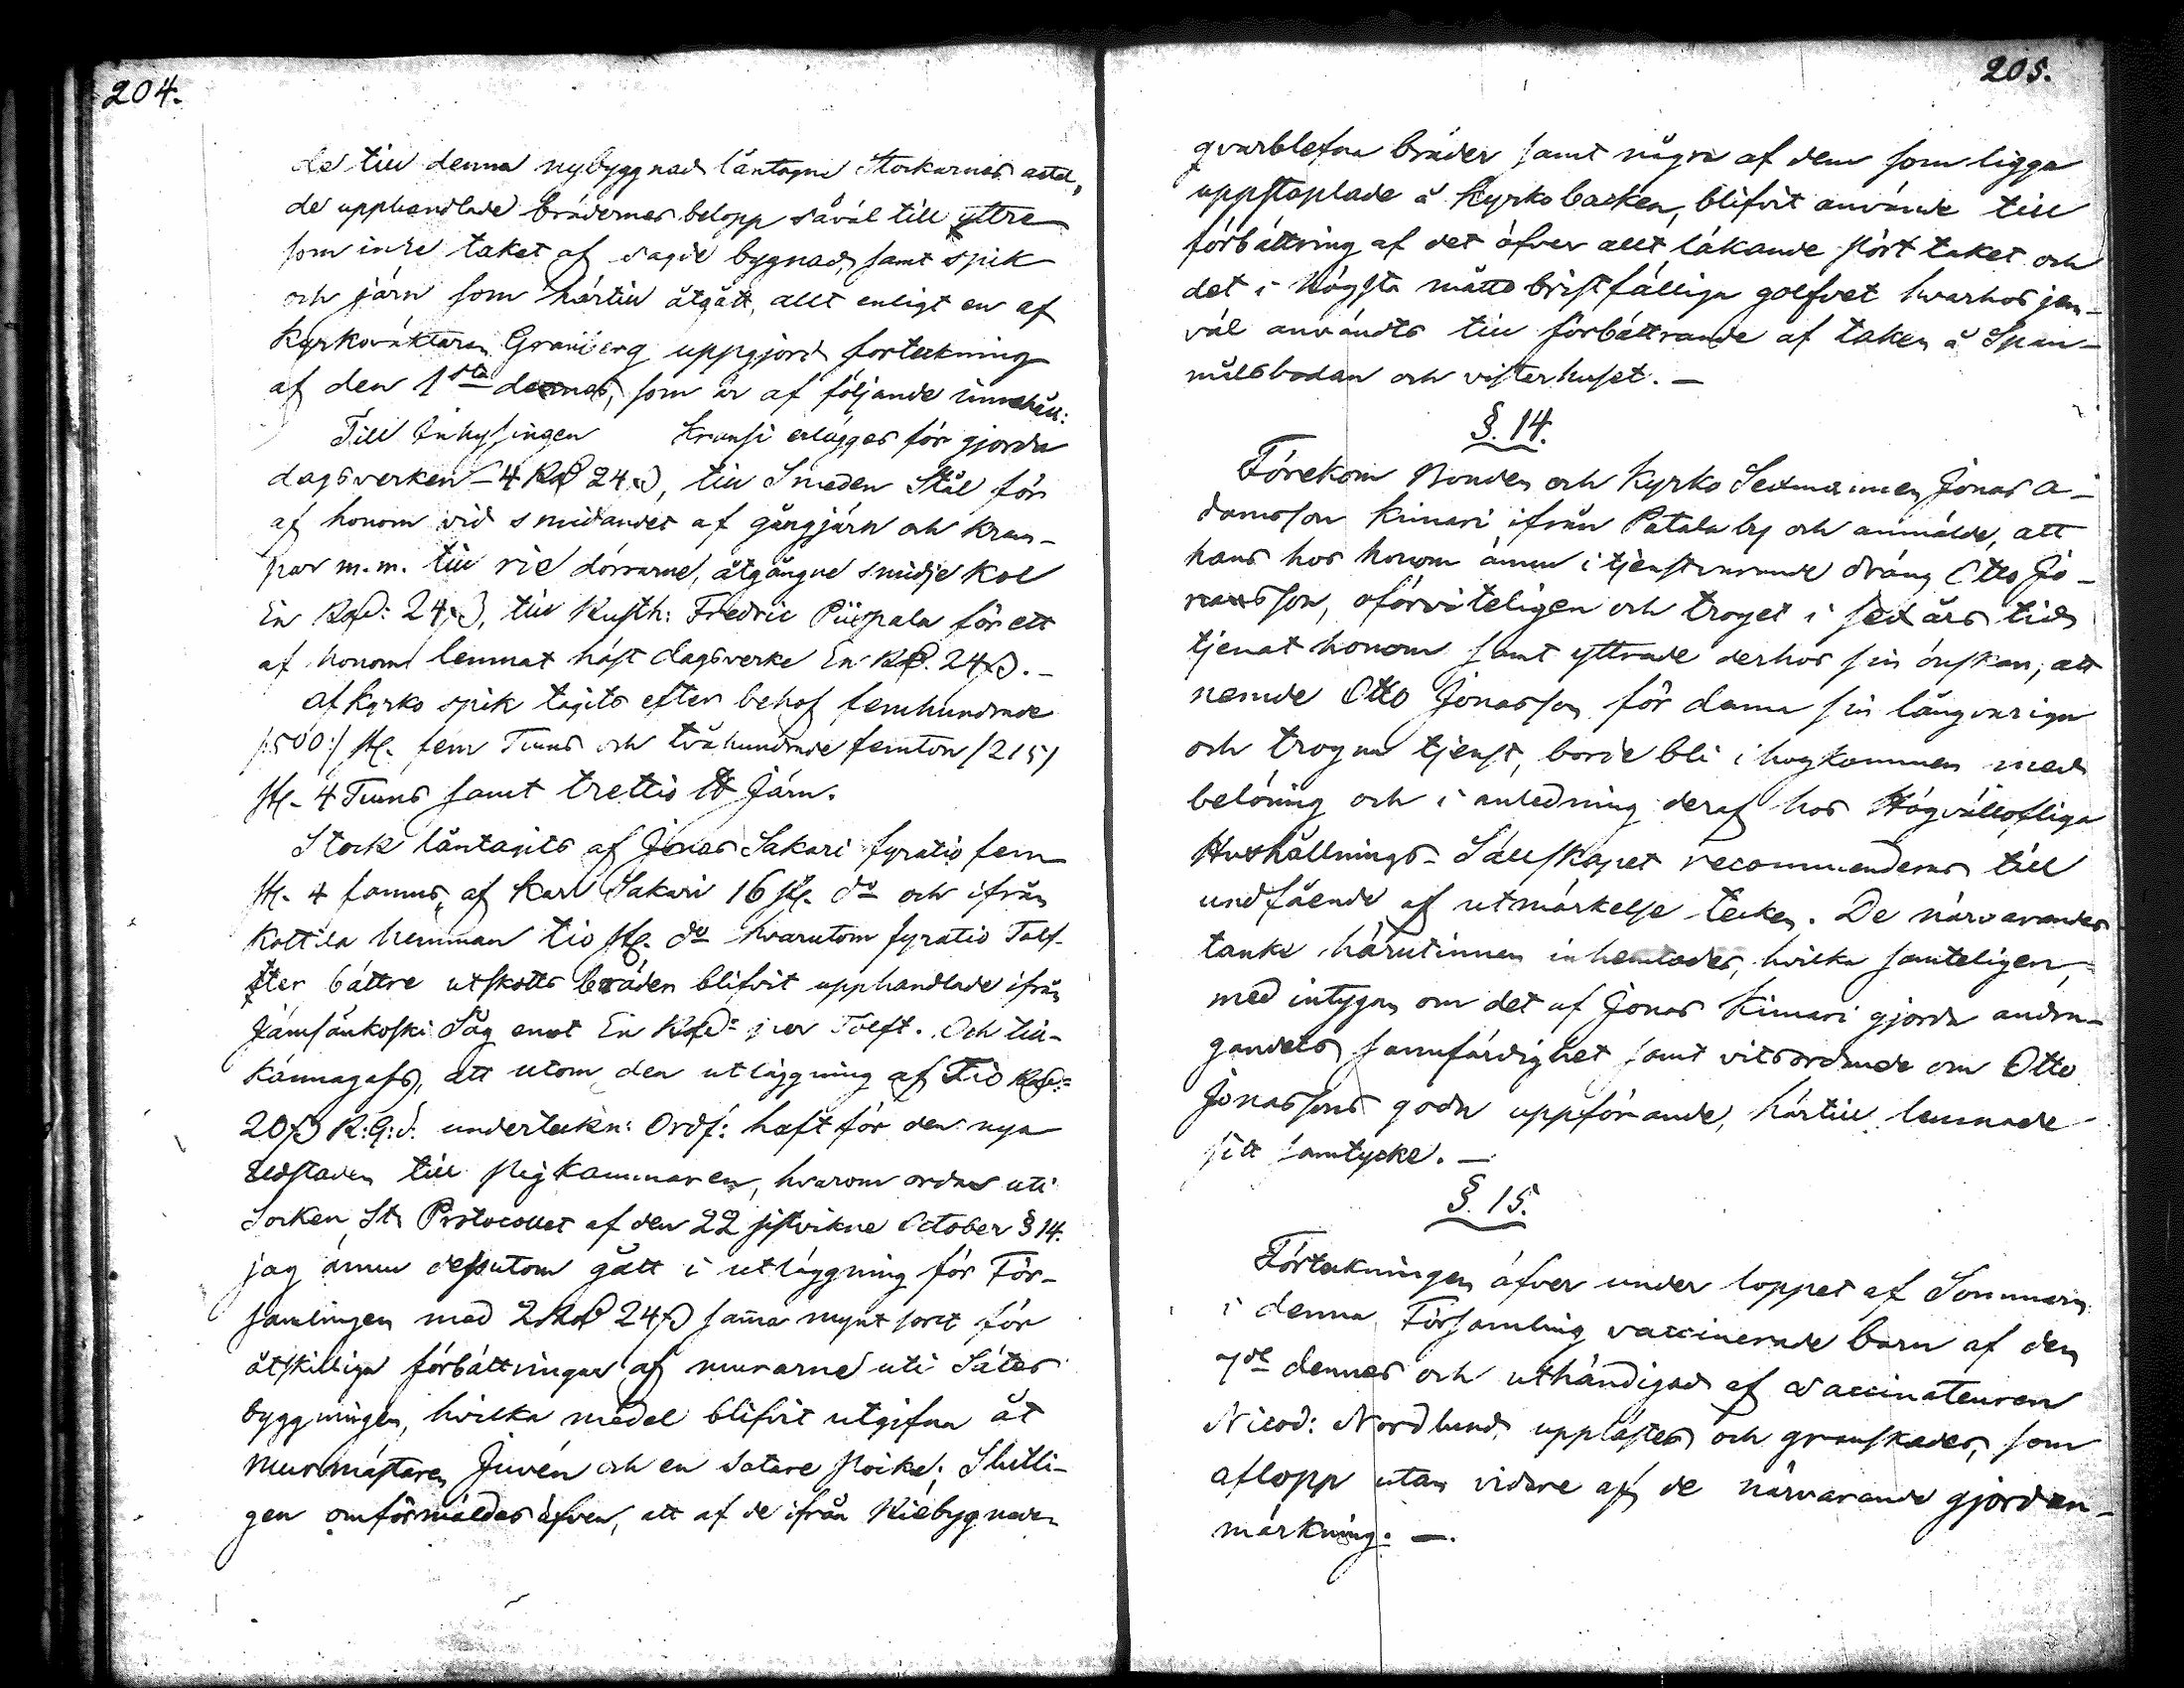 204.
de till denna nybyggnad låntagne Stockarnas antal,
de upphandlade brädernes belopp såväl till yttre
som inre taket af sagde bygnad, samt spik
och järn som härtill åtgått, allt enligt en af
Kyrkoväktaren Granberg uppgjord förteckning
af den 1sta dennes, som är af följande innehåll:
Till Inhysingen Kransi erlägges för gjorda
dagsverken – 4 Rd 24 s, till Smeden Stål för
af honom vid smidandet af gångjärn och kram-
par m.m. till rie dörrarne, åtgångne smidje kol
En Rd: 24 s, till Rusth: Fredric Piispala för ett
af honom lemnat häst dagsverke En Rd. 24 s. –
Af kyrko spik tagits efter behof femhundrade
/:500:/ st. fem Tums och tvåhundrade femton /215/
st. 4 Tums samt trettio ℔ Järn.
Stock låntagits af Jonas Sakari fyratio fem
st. 4 famns, af Karl Sakari 16 st. do och ifrån
Kottila hemman tio st. do hvarutom fyratio Tolf-
ter bättre utskotts bräder blifvit upphandlade ifrån
Jämsänkoski Såg emot En Rd: per Tolft. Och till-
kännagafs, att utom den utläggning af Tio Rd:
20 s R:G:s. underteckn: Ordf: haft för den nya
eldstaden till stigkammaren, hvarom ordas uti
Socken St: Protocollet af den 22 sistvikne October § 14.
jag ännu dessutom gått i utläggning för För-
samlingen med 2 Rd 24 s sam̄a mynt sort för
åtskilliga förbättringar af murarne uti Säter
byggningen, hvilka medel blifvit utgifna åt
Murmästaren Juvén och en Satare Poika; Slutli-
gen omförmäldes äfven, att af de ifrån Riebygnaden
205.
qvarblefna bräder samt några af dem som ligga
uppstaplade å Kyrkobacken, blifvit använde till
förbättring af det öfver allt läkande Pört taket och
det i högsta måtto bristfälliga golfvet hvarhos jem-
väl användts till förbättrande af taken å Span-
målsbodan och visterhuset. –
§. 14.
Förekom Bonden och Kyrko Sexmannen Jonas A-
damsson Kimari ifrån Patala by och anmälde, att
hans hos honom ännu i tjenstvarande dräng Otto Jo-
nasson, oförviteligen och troget i sex års tid
tjenat honom samt yttrade derhos sin önskan, att
nemde Otto Jonasson för dama sin långvariga
och trogna tjenst, borde bli i hogkommen med
belöning och i anledning deraf hos Högvällofliga
Hushållnings-Sällskapet recommenderas till
undfående af utmärkelse tecken. De närvarandes
tanke härutinnan inhemtades, hvilka samteligen
med intygan om det af Jonas Kimari gjorda andra-
gandets sannfärdighet samt vitsordande om Otto
Jonassons goda uppförande, härtill lemnade
sitt samtycke. –
§. 15.
Förteckningen öfver under loppet af Sommarn
i denna Församling vaccinerade barn af den
7de dennes och uthändigad af Vaccinateuren
Nicod: Nordlund, upplästes och granskades, som
aflopp utan vidare af de närvarande gjord an-
märkning. –.